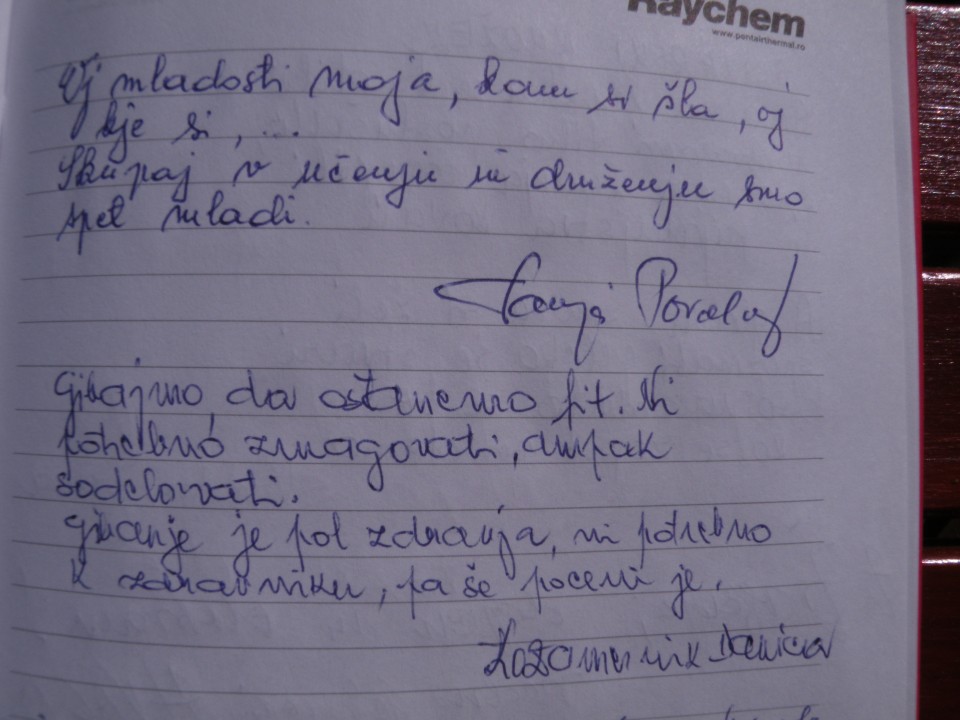 Raychem
www.pentairthermal.ro
Oj mladosti moja, kam si šla, oj
kje si, ...
Skupaj v učenju in druženju smo
spet mladi.
Tanja
Gibajmo, da ostanemo fit. Ni
potrebno zmagovati, ampak
sodelovati.
Gibanje je pol zdravja, ni potrebno
k zdravniku, pa še poceni je.
Danica